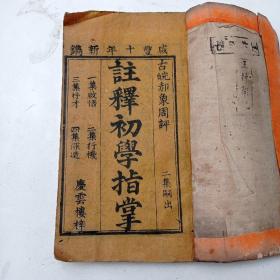 咸豐十年新鐫
古皖郝象周評
二集嗣出
註釋初學指掌
一集啟悟
二集行機
三集行才
四集深造
慶雲樓梓